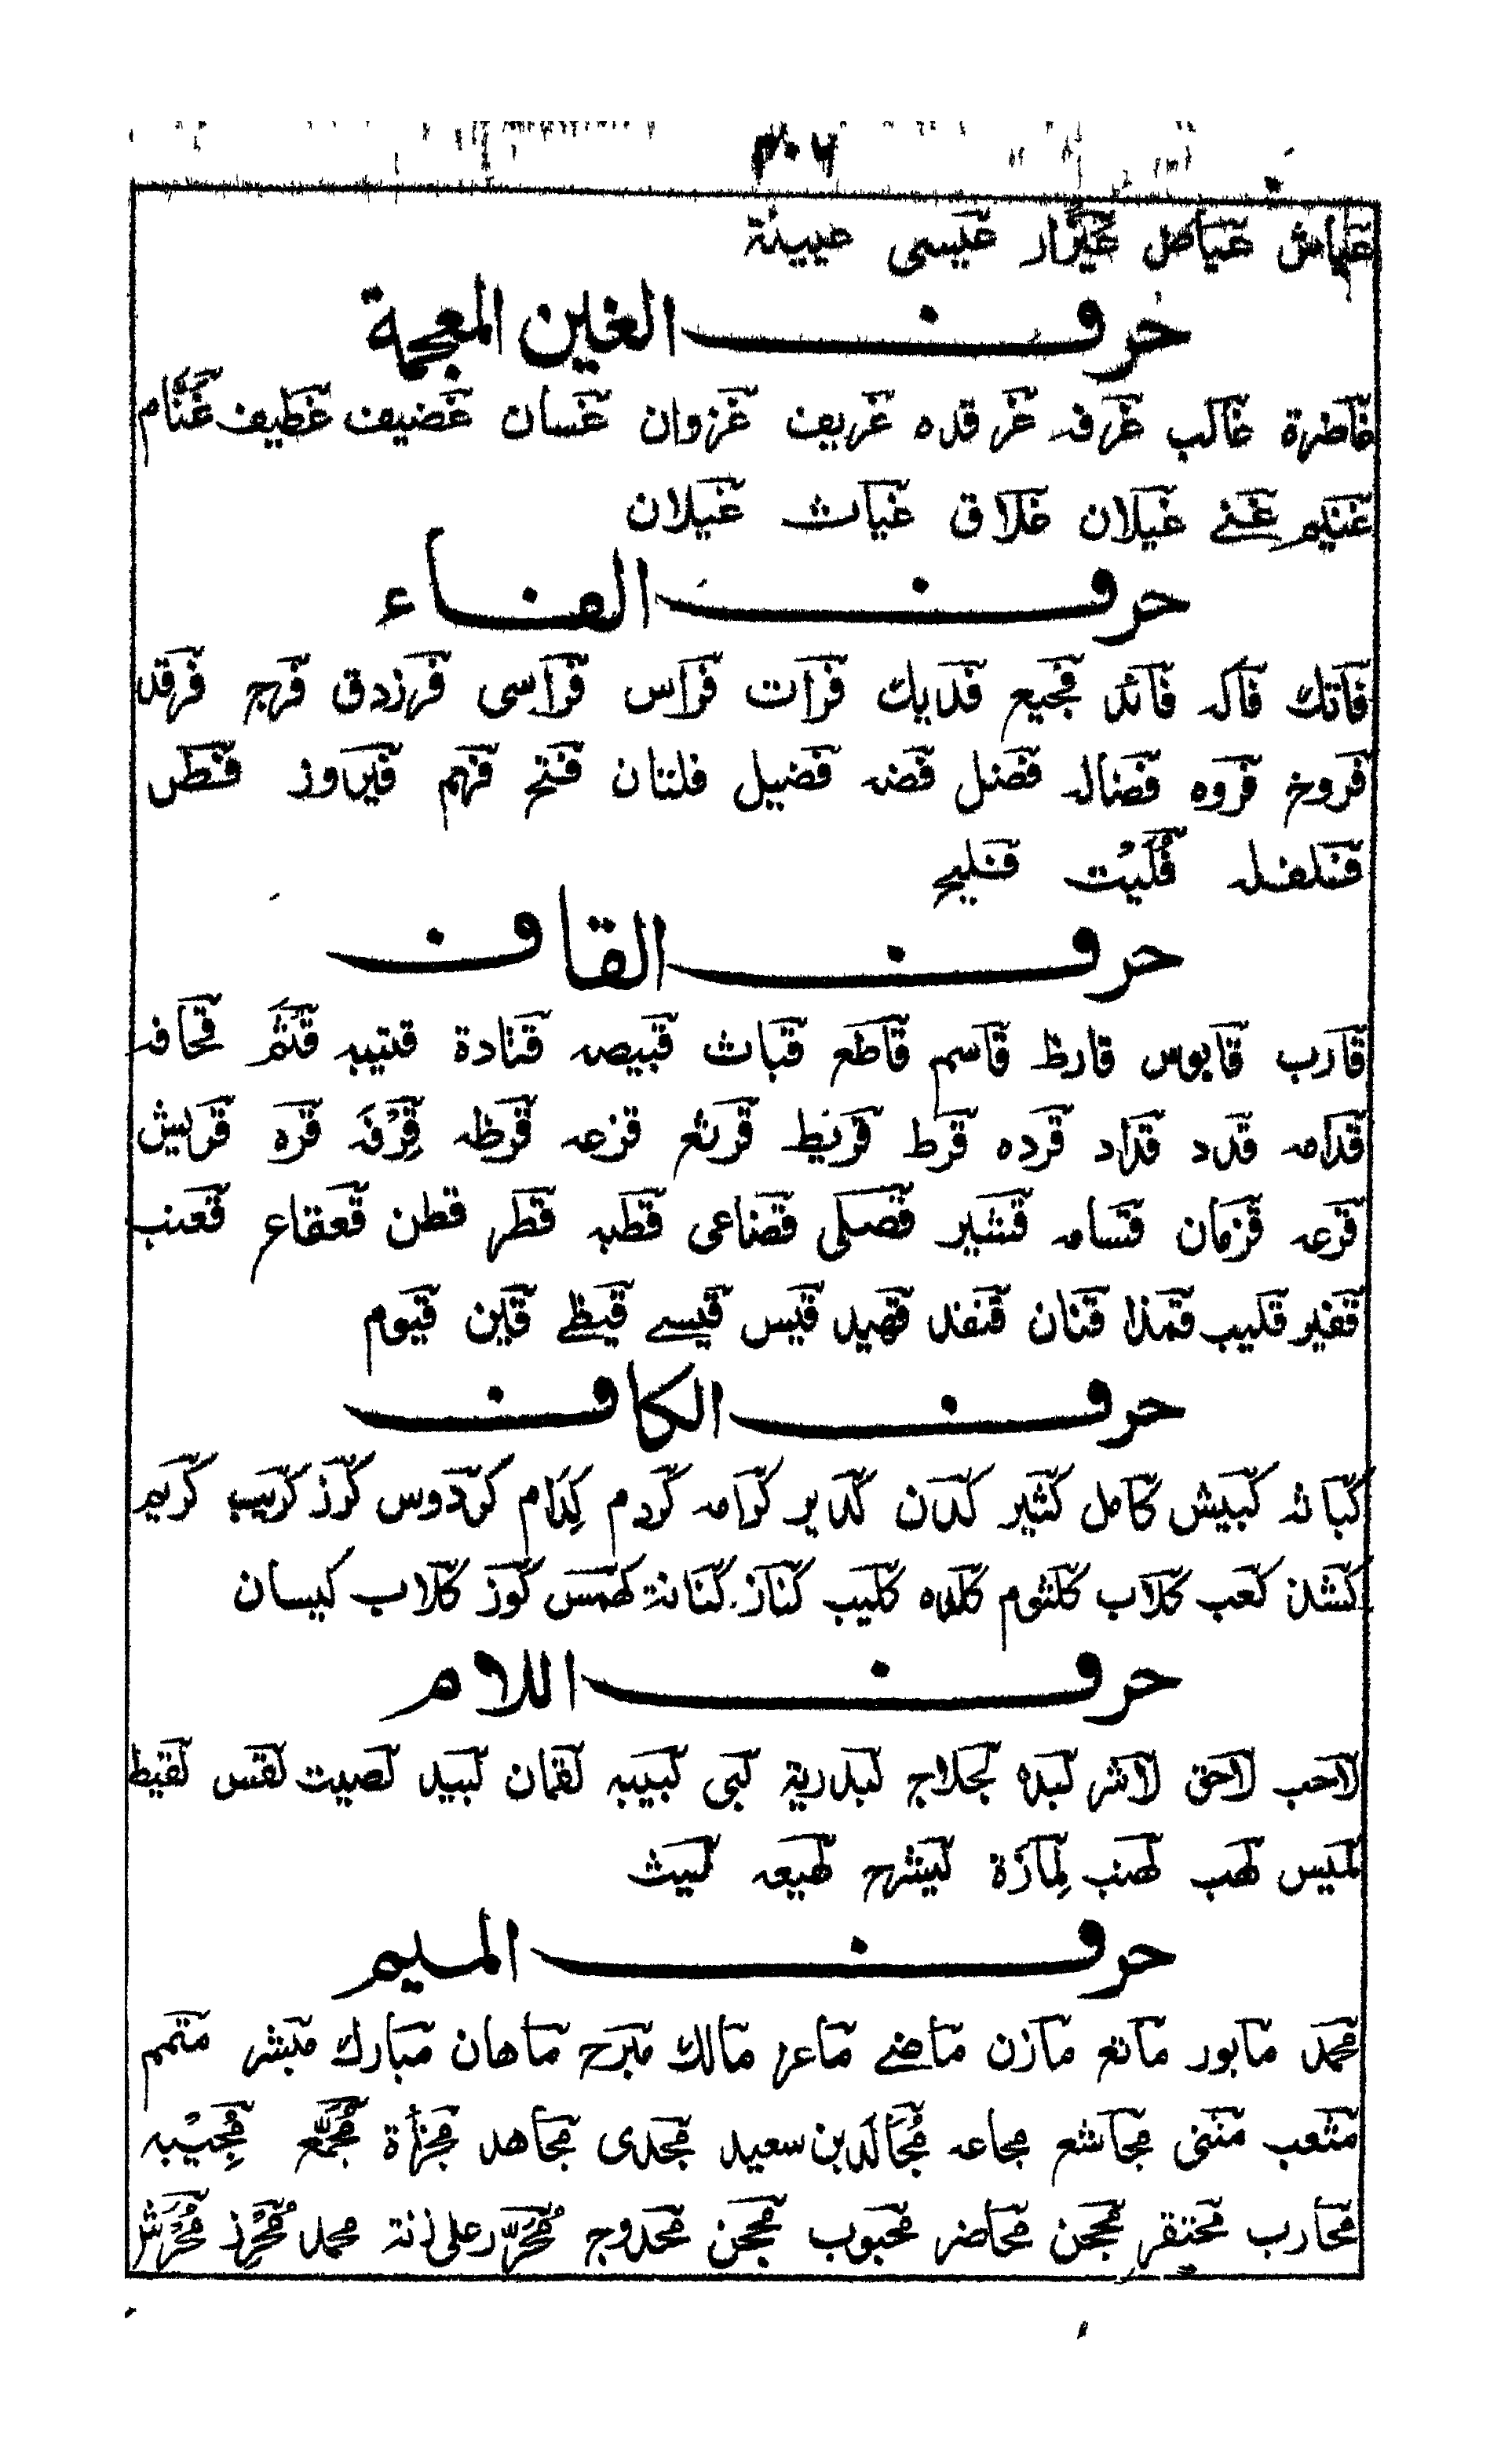 ٣٠٦
عياش عياض عيزار عيسى عيينة
حرف الغين المعجمة
غاضرة غالب غرفه غرقده غريف غزوان غسان غضيف غطيف غنام
غنيم غنے غيلان غلاق غياث غيلان
حرف الفاء
فاتك فاكه فائد فجيع فديك فرات فراس فراسى فرزدق فرج فرقد
فروخ فروه فضاله فضل فضه فضيل فلتان فتح فهم فيروز فطس
فلفله فُلَيْت فليح
حرف القاف
قارب قابوس قارظ قاسم قاطع قباث قبيصه قتادة قتيبه قُثَم قحافه
قدامه قدد قداد قرده قرط قريط قرثع قزعه قرظه قِرْفَه قره قريش
قرعه قزمان قسامه قشير قصلى قضاعى قطبه قطر قطن قعقاع قعنب
قفير قليب قمذا قنان قنفذ قهيد قيس قيسے قيظے قين قيوم
حرف الكاف
كباثه كبيش كامل كثير كدن كدير كرامه كردم كِدَام كردوس كرز كريب كريم
كشد كعب كلاب كلثوم كلده كليب كناز كنانة كهمس كوز كلاب كيسان
حرف اللام
لاحب لاحق لاشر لبده لجلاج لبدرية لبى لبيبه لقمان لبيد لصيت لقس لقيط
لميس لهب لِمازَة ليشرح لهيعه ليث
حرف الميم
محمد مابور ماتع مازن ماضے ماعز مالك مبرح ماهان مبارك مبشر متمم
مثعب مثنى مجاشع مجاعه مُجَالَد بن سعيد مجدى مجاهد مجزأة مُجَمَّع مُجِيْبه
محارب محتقر محجن محاضر محبوب محجن محدوج مُحَرَّر على زنة محمد مُحْرِز مُحَرَّش